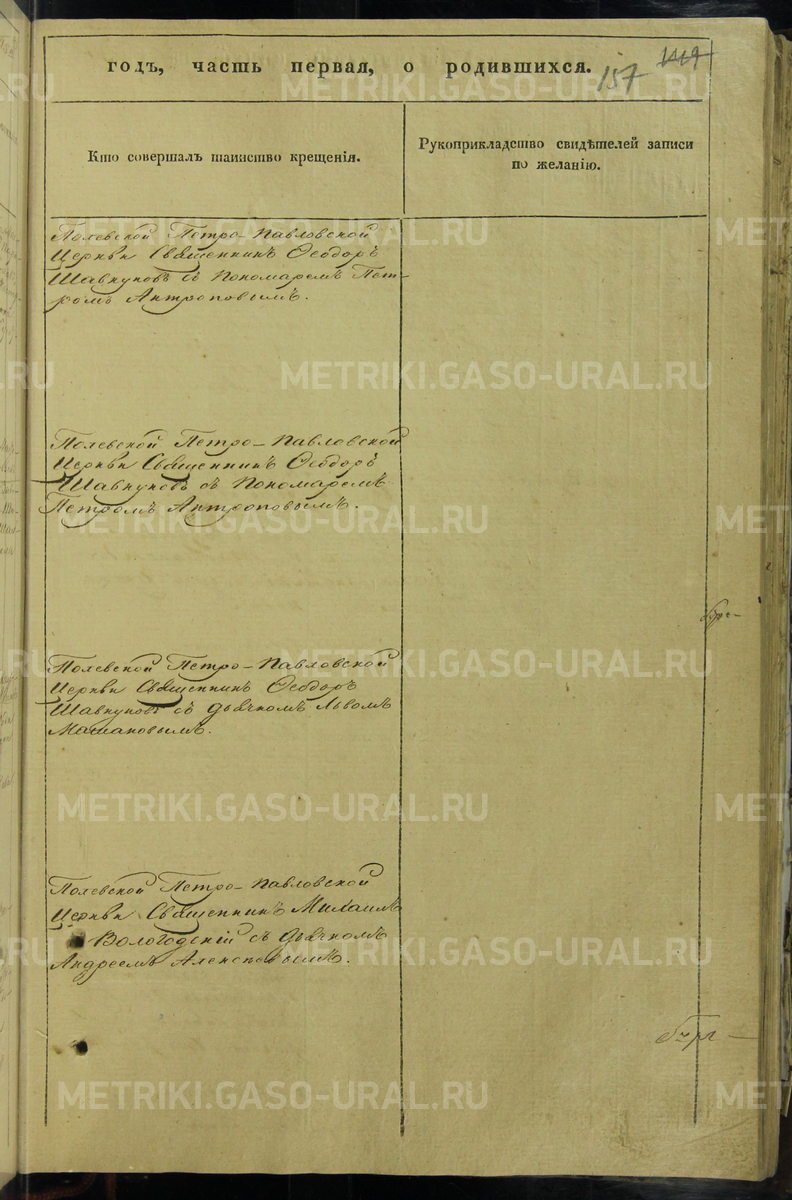 годъ, часть первая, о родившихся.
157
Кто совершалъ таинство крещенія.
Рукоприкладство свидѣтелей записи
по желанію.
Полевской Петро-Павловской
Церкви Священникъ Ѳеодоръ
Шавкуновъ съ Пономаремъ Пет-
ромъ Антроповымъ.
Полевской Петро-Павловской
Церкви Священникъ Ѳеодоръ
Шавкуновъ съ Пономаремъ
Петромъ Антроповымъ.
Полевской Петро-Павловской
Церкви Священникъ Ѳеодоръ
Шавкуновъ съ Дьячкомъ Львомъ
Полевской Петро-Павловской
Церкви Священникъ Михаилъ
Вологодскій съ Дьячкомъ
Андреемъ Алексѣевымъ.
METRIKI.GASO-URAL.RU